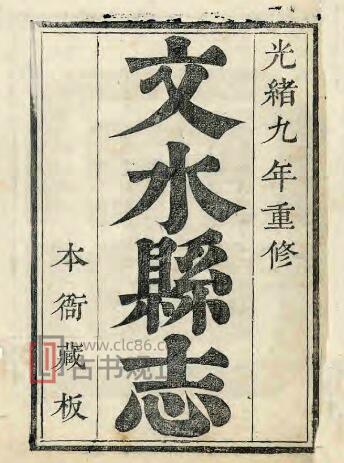 光緒九年重修
文水縣志
本衙藏板
www.clc86.co
古书观止